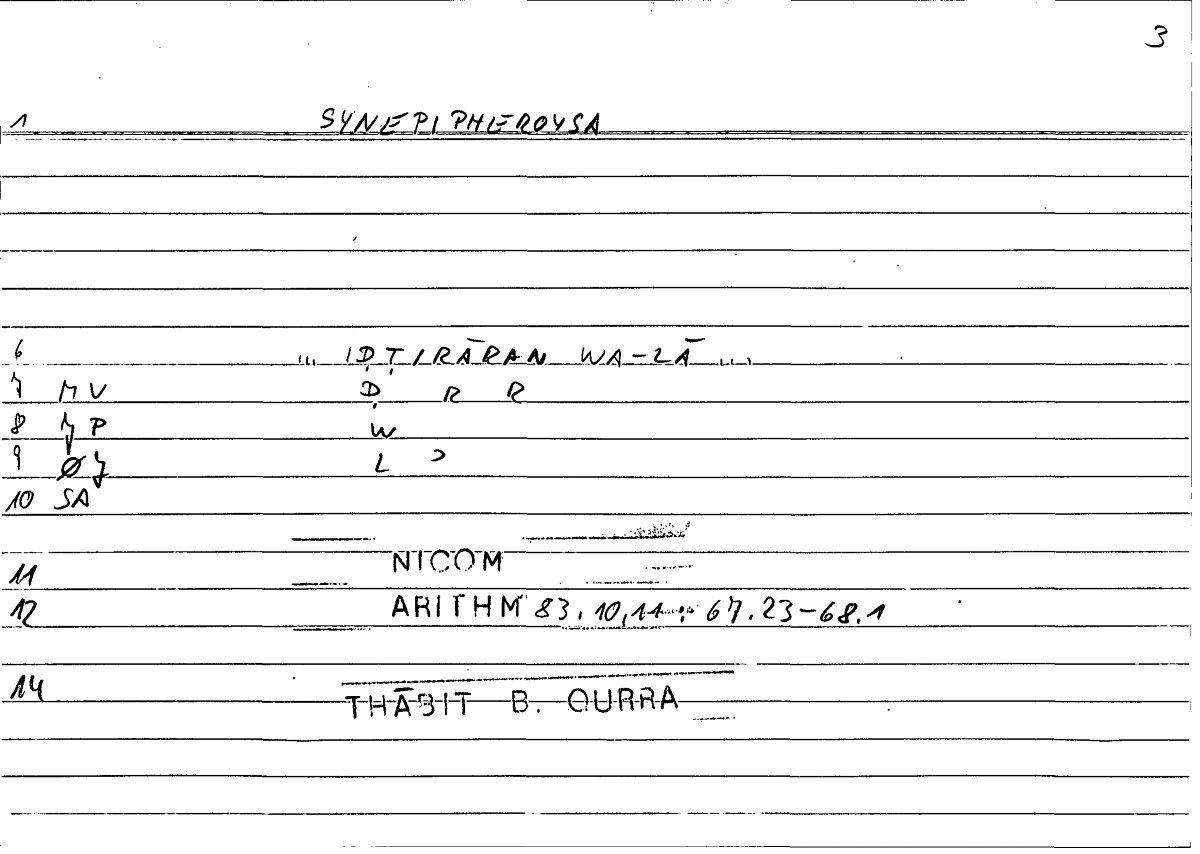 3
1 SYNEPIPHEROYSA
6 ... IḌṬIRĀRAN WA-LĀ ...
7 MV Ḍ R R
8 JP W
9 ØJ L ʾ
10 SA
11 NICOM
12 ARITHM 83.10,11 : 67.23-68.1
14 THĀBIT B. QURRA